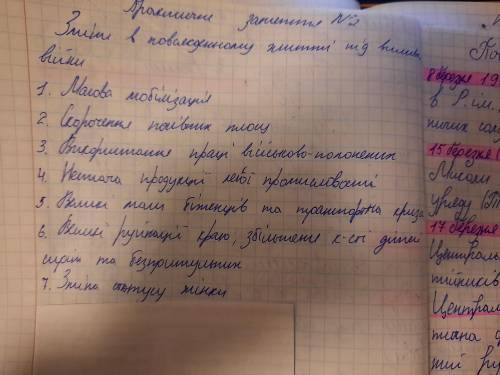 Практичне заняття №2
Зміни в повсякденному житті під вплив.
війни
1. Масова мобілізація
2. Скорочення посівних площ
3. Використання праці військово-полонених
4. Нестача продукції легкої промисловості
5. Великі маси біженців та продовольча криза
6. Великі руйнації краю, збільшення к-сті дітей
сиріт та безпритульних
7. Зміна статусу жінки
8 березня 19
в Р.ім.
15 березня
уряду
17 березня
Централь
Централ